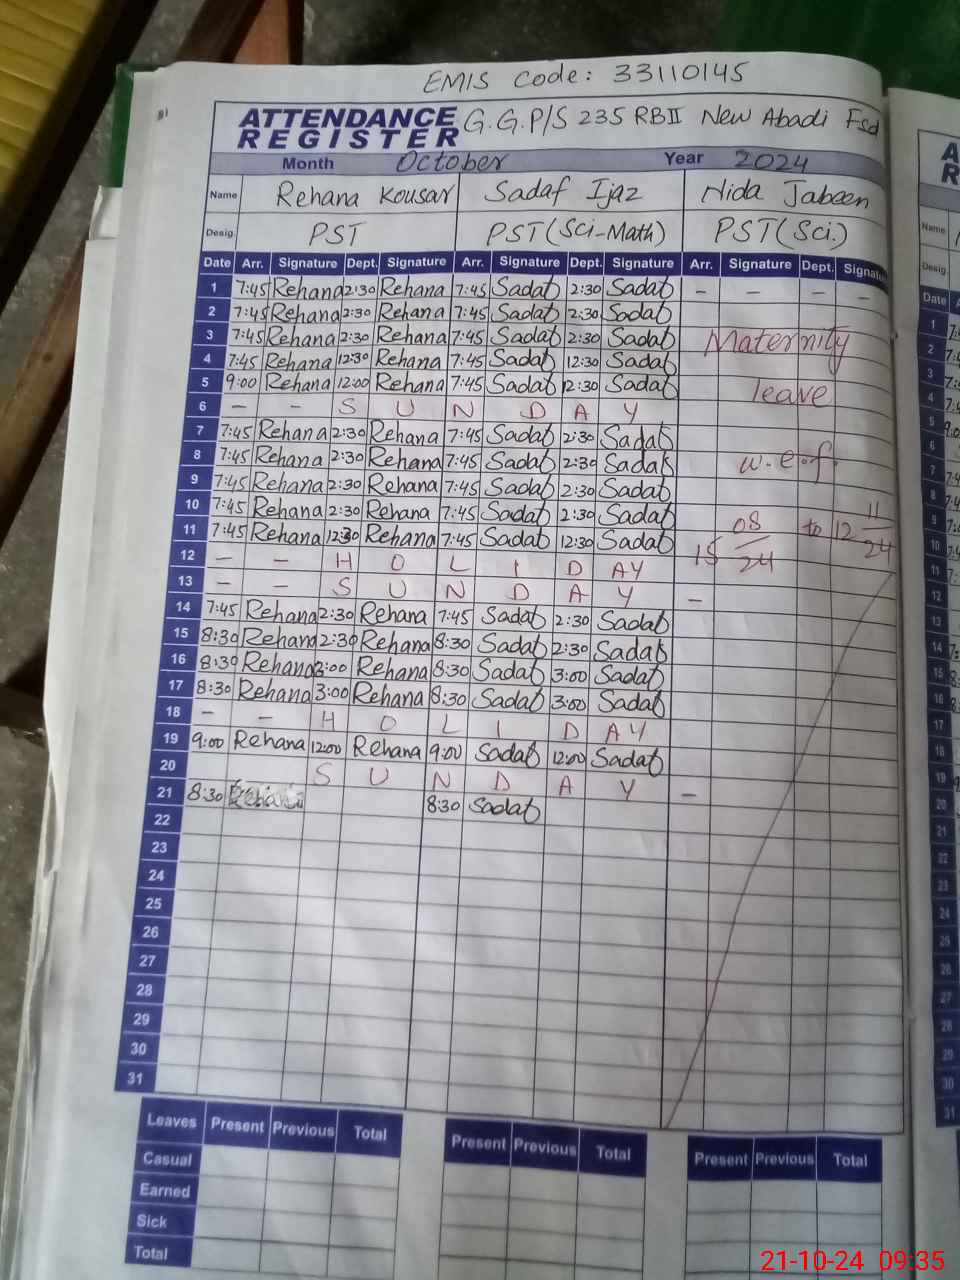 EMIS Code: 33110145
ATTENDANCE REGISTER G.G.P/S 235 RB II New Abadi Fsd
Month October Year 2024
Name Rehana Kousar Sadaf Ijaz Nida Jabeen
Desig. PST PST (Sci-Math) PST (Sci.)
Date Arr. Signature Dept. Signature Arr. Signature Dept. Signature Arr. Signature Dept. Signature
1 7:45 Rehana 2:30 Rehana 7:45 Sadaf 2:30 Sadaf - - - -
2 7:45 Rehana 2:30 Rehana 7:45 Sadaf 2:30 Sadaf
3 7:45 Rehana 2:30 Rehana 7:45 Sadaf 2:30 Sadaf Maternity
4 7:45 Rehana 12:30 Rehana 7:45 Sadaf 12:30 Sadaf
5 9:00 Rehana 12:00 Rehana 7:45 Sadaf 12:30 Sadaf leave
6 - - S U N D A Y
7 7:45 Rehana 2:30 Rehana 7:45 Sadaf 2:30 Sadaf
8 7:45 Rehana 2:30 Rehana 7:45 Sadaf 2:30 Sadaf w.e.f.
9 7:45 Rehana 2:30 Rehana 7:45 Sadaf 2:30 Sadaf
10 7:45 Rehana 2:30 Rehana 7:45 Sadaf 2:30 Sadaf
11 7:45 Rehana 12:30 Rehana 7:45 Sadaf 12:30 Sadaf 15 08/24 to 12 11/24
12 - - H O L I D A Y
13 - - S U N D A Y -
14 7:45 Rehana 2:30 Rehana 7:45 Sadaf 2:30 Sadaf
15 8:30 Rehana 2:30 Rehana 8:30 Sadaf 2:30 Sadaf
16 8:30 Rehana 3:00 Rehana 8:30 Sadaf 3:00 Sadaf
17 8:30 Rehana 3:00 Rehana 8:30 Sadaf 3:00 Sadaf
18 - - H O L I D A Y
19 9:00 Rehana 12:00 Rehana 9:00 Sadaf 12:00 Sadaf
20 S U N D A Y -
21 8:30 Rehana 8:30 Sadaf
22
23
24
25
26
27
28
29
30
31
Leaves Present Previous Total Present Previous Total Present Previous Total
Casual
Earned
Sick
Total
21-10-24 09:35